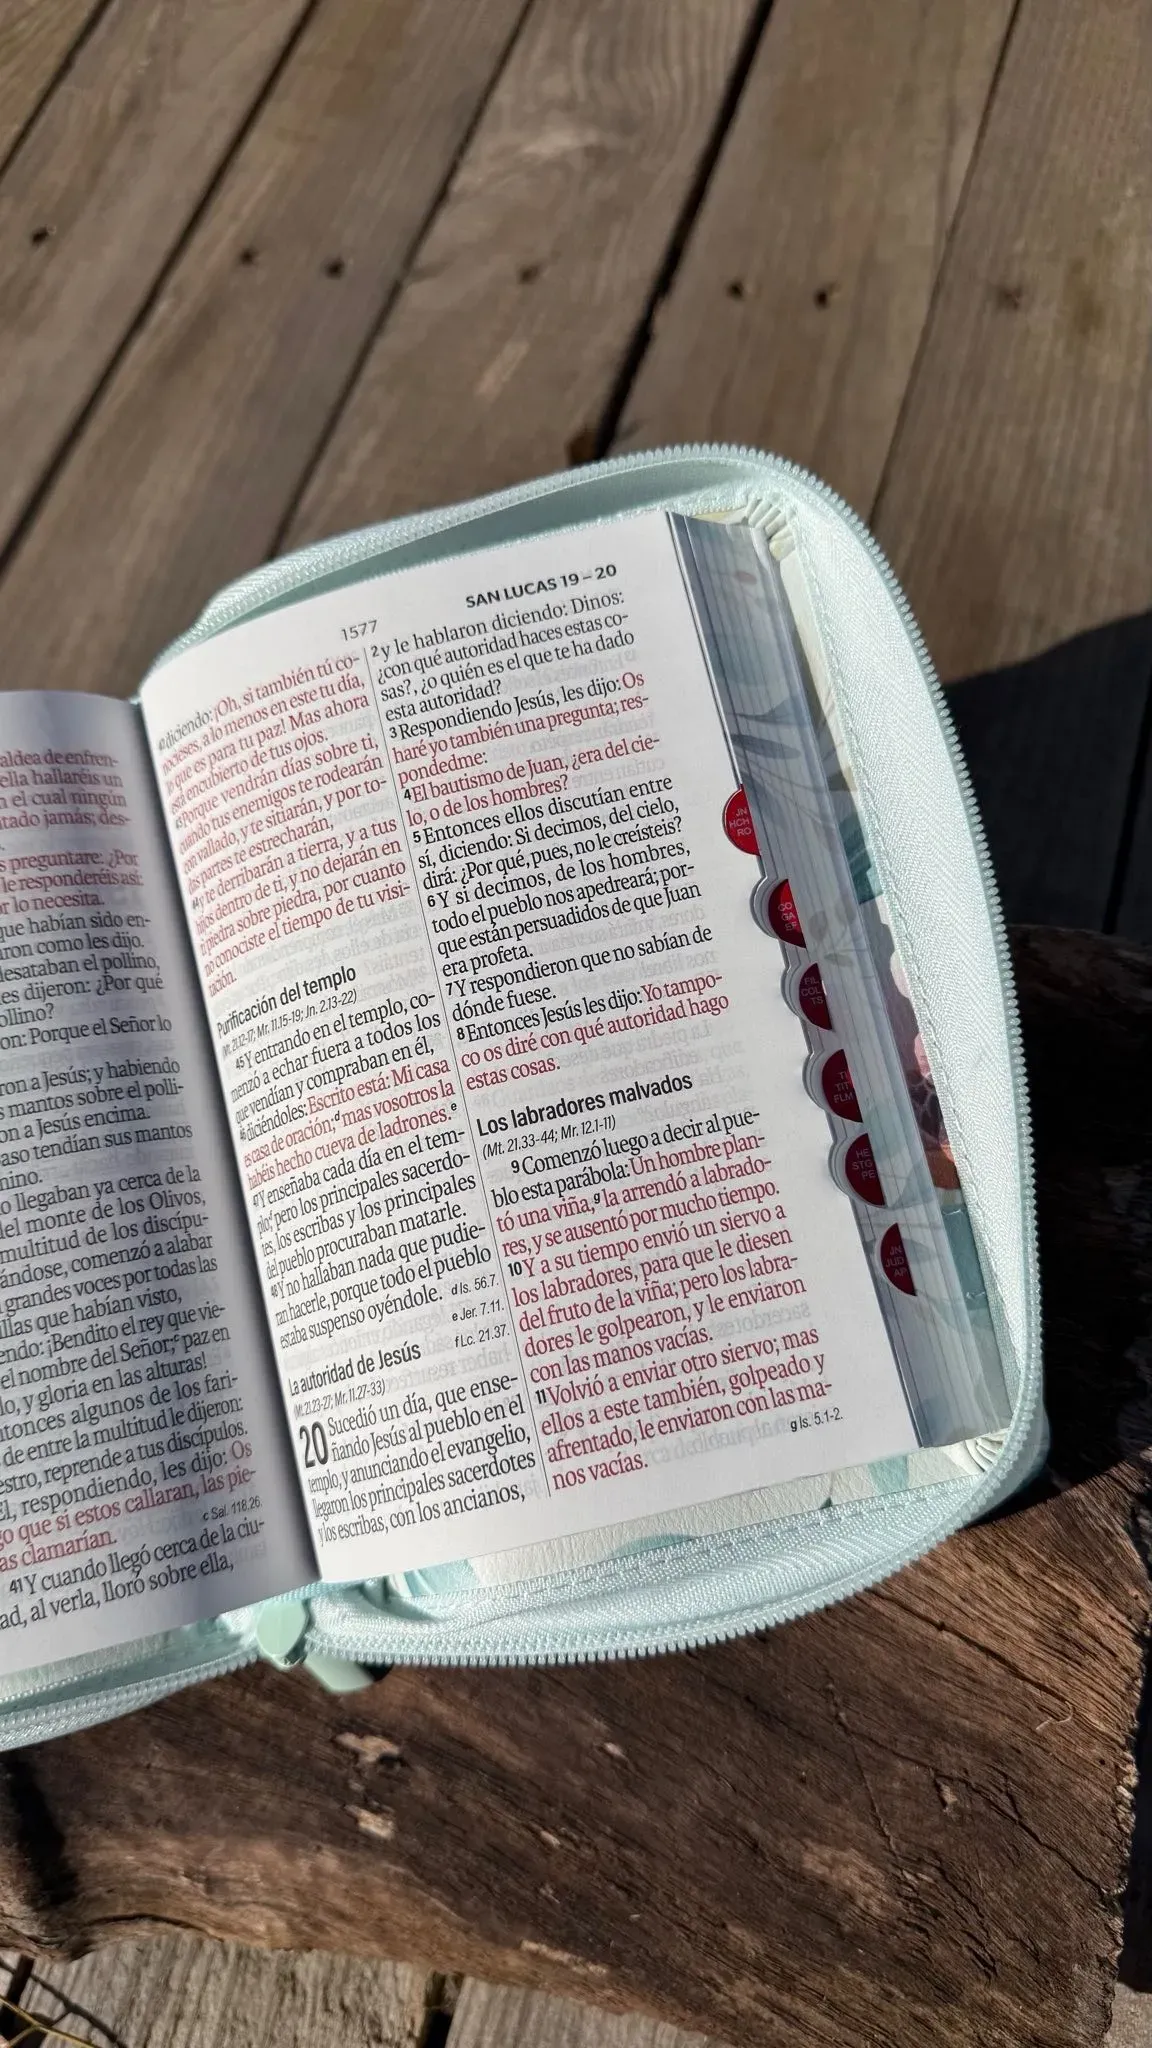 aldea de enfren-
ella hallaréis un
n el cual ningún
tado jamás; des-
s preguntare: ¿Por
le responderéis así:
or lo necesita.
que habían sido en-
aron como les dijo.
desataban el pollino,
les dijeron: ¿Por qué
ollino?
on: Porque el Señor lo
ron a Jesús; y habiendo
s mantos sobre el polli-
on a Jesús encima.
aso tendían sus mantos
mino.
o llegaban ya cerca de la
del monte de los Olivos,
multitud de los discípu-
ándose, comenzó a alabar
grandes voces por todas las
illas que habían visto,
endo: ¡Bendito el rey que vie-
el nombre del Señor;c paz en
lo, y gloria en las alturas!
ntonces algunos de los fari-
de entre la multitud le dijeron:
estro, reprende a tus discípulos.
Él, respondiendo, les dijo: Os
go que si estos callaran, las pie-
as clamarían.
c Sal. 118.26.
41 Y cuando llegó cerca de la ciu-
ad, al verla, lloró sobre ella,
1577
SAN LUCAS 19 – 20
42 diciendo: ¡Oh, si también tú co-
nocieses, a lo menos en este tu día,
lo que es para tu paz! Mas ahora
está encubierto de tus ojos.
43 Porque vendrán días sobre ti,
cuando tus enemigos te rodearán
con vallado, y te sitiarán, y por to-
das partes te estrecharán,
44 y te derribarán a tierra, y a tus
hijos dentro de ti, y no dejarán en
ti piedra sobre piedra, por cuanto
no conociste el tiempo de tu visi-
tación.
Purificación del templo
(Mt. 21.12-17; Mr. 11.15-19; Jn. 2.13-22)
45 Y entrando en el templo, co-
menzó a echar fuera a todos los
que vendían y compraban en él,
46 diciéndoles: Escrito está: Mi casa
es casa de oración;d mas vosotros la
habéis hecho cueva de ladrones.e
47 Y enseñaba cada día en el tem-
plo;f pero los principales sacerdo-
tes, los escribas y los principales
del pueblo procuraban matarle.
48 Y no hallaban nada que pudie-
ran hacerle, porque todo el pueblo
estaba suspenso oyéndole.
d Is. 56.7.
e Jer. 7.11.
f Lc. 21.37.
La autoridad de Jesús
(Mt. 21.23-27; Mr. 11.27-33)
20 Sucedió un día, que ense-
ñando Jesús al pueblo en el
templo, y anunciando el evangelio,
llegaron los principales sacerdotes
y los escribas, con los ancianos,
2 y le hablaron diciendo: Dinos:
¿con qué autoridad haces estas co-
sas?, ¿o quién es el que te ha dado
esta autoridad?
3 Respondiendo Jesús, les dijo: Os
haré yo también una pregunta; res-
pondedme:
4 El bautismo de Juan, ¿era del cie-
lo, o de los hombres?
5 Entonces ellos discutían entre
sí, diciendo: Si decimos, del cielo,
dirá: ¿Por qué, pues, no le creísteis?
6 Y si decimos, de los hombres,
todo el pueblo nos apedreará; por-
que están persuadidos de que Juan
era profeta.
7 Y respondieron que no sabían de
dónde fuese.
8 Entonces Jesús les dijo: Yo tampo-
co os diré con qué autoridad hago
estas cosas.
Los labradores malvados
(Mt. 21.33-44; Mr. 12.1-11)
9 Comenzó luego a decir al pue-
blo esta parábola: Un hombre plan-
tó una viña,g la arrendó a labrado-
res, y se ausentó por mucho tiempo.
10 Y a su tiempo envió un siervo a
los labradores, para que le diesen
del fruto de la viña; pero los labra-
dores le golpearon, y le enviaron
con las manos vacías.
11 Volvió a enviar otro siervo; mas
ellos a este también, golpeado y
afrentado, le enviaron con las ma-
nos vacías.
g Is. 5.1-2.
JN
HCH
RO
CO
GA
EF
FIL
COL
TS
TI
TIT
FLM
HE
STG
PE
JN
JUD
AP